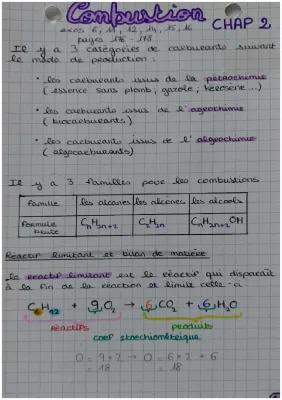 Combustion
CHAP 2
exos 6, 11, 12, 14, 15, 16
pages 176 - 178
Il y a 3 catégories de carburants suivant
le mode de production :
• les carburants issus de la pétrochimie
(essence sans plomb, gazole, kérosène...)
• les carburants issus de l'agrochimie
(biocarburants)
• les carburants issus de l'algochimie
(algocarburants)
Il y a 3 familles pour les combustions
Famille | les alcanes | les alcènes | les alcools
Formule brute | CnH2n+2 | CnH2n | CnH2n+1OH
Réactif limitant et bilan de matière
Le réactif limitant est le réactif qui disparaît
à la fin de la réaction et limite celle-ci
C6H12 + 9O2 → 6CO2 + 6H2O
réactifs produits
coef stoechiométrique
O = 9 × 2 → O = 6 × 2 + 6
= 18 = 18